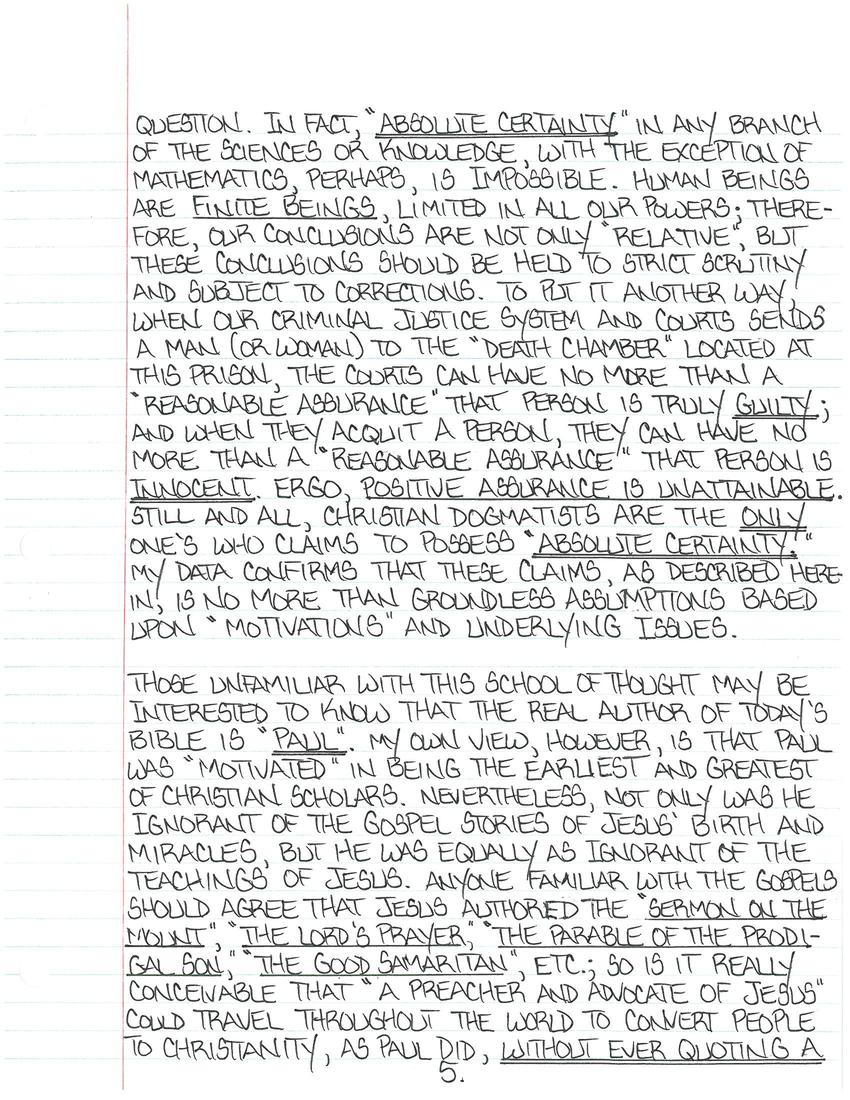 QUESTION. IN FACT, "ABSOLUTE CERTAINTY" IN ANY BRANCH
OF THE SCIENCES OR KNOWLEDGE, WITH THE EXCEPTION OF
MATHEMATICS, PERHAPS, IS IMPOSSIBLE. HUMAN BEINGS
ARE FINITE BEINGS, LIMITED IN ALL OUR POWERS; THERE-
FORE, OUR CONCLUSIONS ARE NOT ONLY "RELATIVE", BUT
THESE CONCLUSIONS SHOULD BE HELD TO STRICT SCRUTINY
AND SUBJECT TO CORRECTIONS. TO PUT IT ANOTHER WAY,
WHEN OUR CRIMINAL JUSTICE SYSTEM AND COURTS SENDS
A MAN (OR WOMAN) TO THE "DEATH CHAMBER" LOCATED AT
THIS PRISON, THE COURTS CAN HAVE NO MORE THAN A
"REASONABLE ASSURANCE" THAT PERSON IS TRULY GUILTY;
AND WHEN THEY ACQUIT A PERSON, THEY CAN HAVE NO
MORE THAN A "REASONABLE ASSURANCE" THAT PERSON IS
INNOCENT. ERGO, POSITIVE ASSURANCE IS UNATTAINABLE.
STILL AND ALL, CHRISTIAN DOGMATISTS ARE THE ONLY
ONE'S WHO CLAIMS TO POSSESS "ABSOLUTE CERTAINTY."
MY DATA CONFIRMS THAT THESE CLAIMS, AS DESCRIBED HERE-
IN, IS NO MORE THAN GROUNDLESS ASSUMPTIONS BASED
UPON "MOTIVATIONS" AND UNDERLYING ISSUES.
THOSE UNFAMILIAR WITH THIS SCHOOL OF THOUGHT MAY BE
INTERESTED TO KNOW THAT THE REAL AUTHOR OF TODAY'S
BIBLE IS "PAUL". MY OWN VIEW, HOWEVER, IS THAT PAUL
WAS "MOTIVATED" IN BEING THE EARLIEST AND GREATEST
OF CHRISTIAN SCHOLARS. NEVERTHELESS, NOT ONLY WAS HE
IGNORANT OF THE GOSPEL STORIES OF JESUS' BIRTH AND
MIRACLES, BUT HE WAS EQUALLY AS IGNORANT OF THE
TEACHINGS OF JESUS. ANYONE FAMILIAR WITH THE GOSPELS
SHOULD AGREE THAT JESUS AUTHORED THE "SERMON ON THE
MOUNT", "THE LORD'S PRAYER," "THE PARABLE OF THE PRODI-
GAL SON," "THE GOOD SAMARITAN", ETC.; SO IS IT REALLY
CONCEIVABLE THAT "A PREACHER AND ADVOCATE OF JESUS"
COULD TRAVEL THROUGHOUT THE WORLD TO CONVERT PEOPLE
TO CHRISTIANITY, AS PAUL DID, WITHOUT EVER QUOTING A
5.